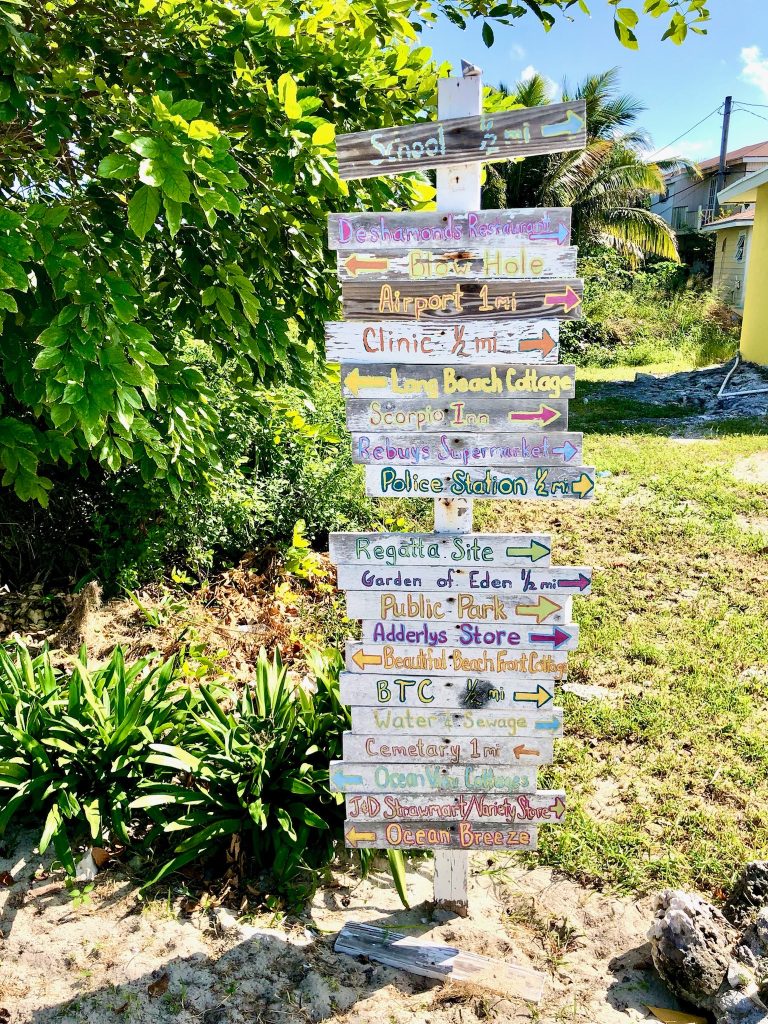 School ½ mi
Deshamonds Restaurant
Blow Hole
Airport 1mi
Clinic ½ mi
Long Beach Cottage
Scorpio Inn
Rebuys Supermarket
Police Station ½ mi
Regatta Site
Garden of Eden ½ mi
Public Park
Adderlys Store
Beautiful Beach Front Cottage
BTC ½ mi
Water & Sewage
Cemetary 1 mi
Ocean View Cottages
J&D Strawmart/Variety Store
Ocean Breeze